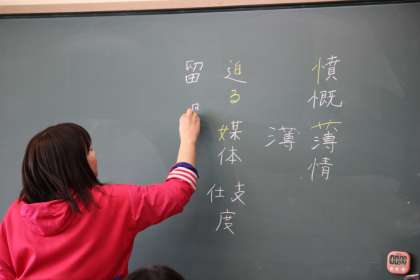 憤慨
薄情
薄
迫る
媒体
支度
仕
留